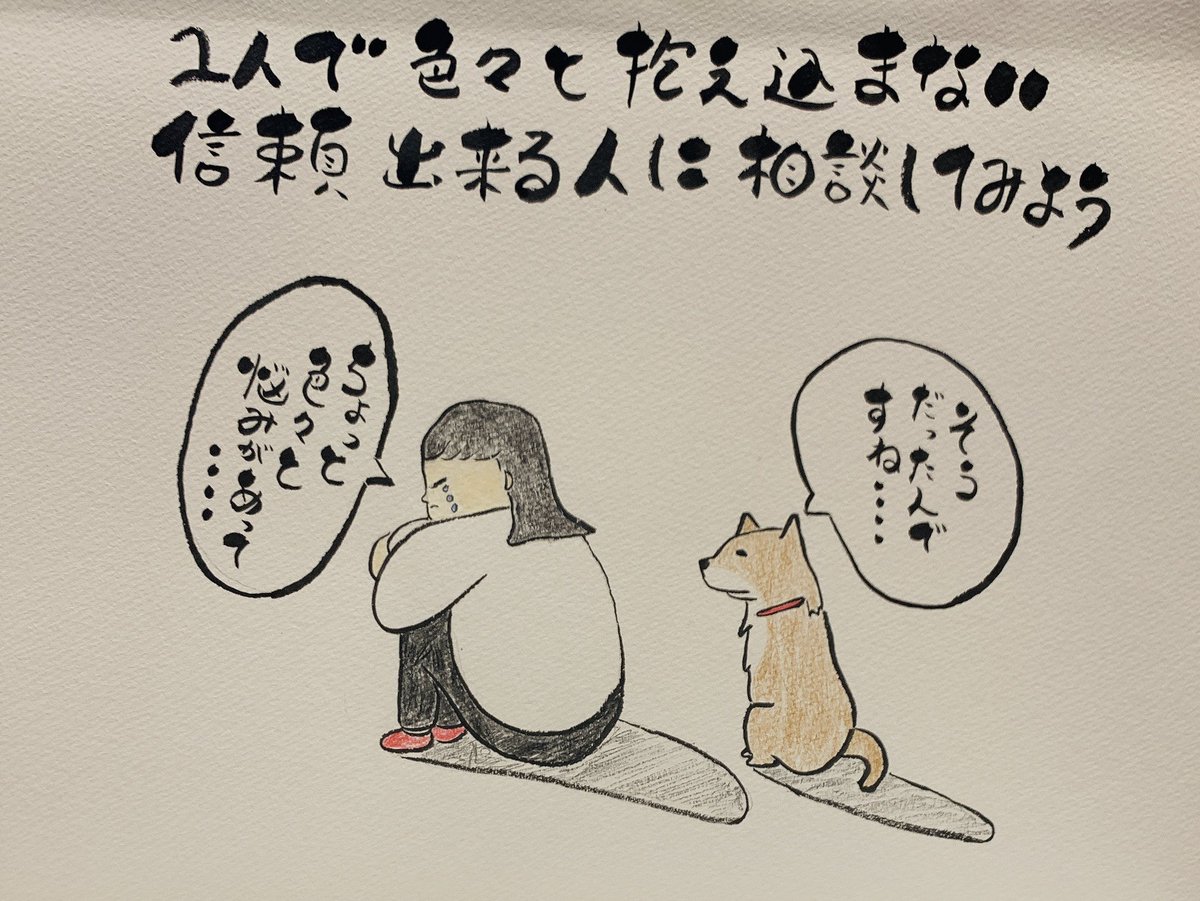 2人で色々と抱え込まない
信頼出来る人に相談してみよう
ちょっと
色々と
悩みがあって・・・・
そう
だったんで
すね・・・・